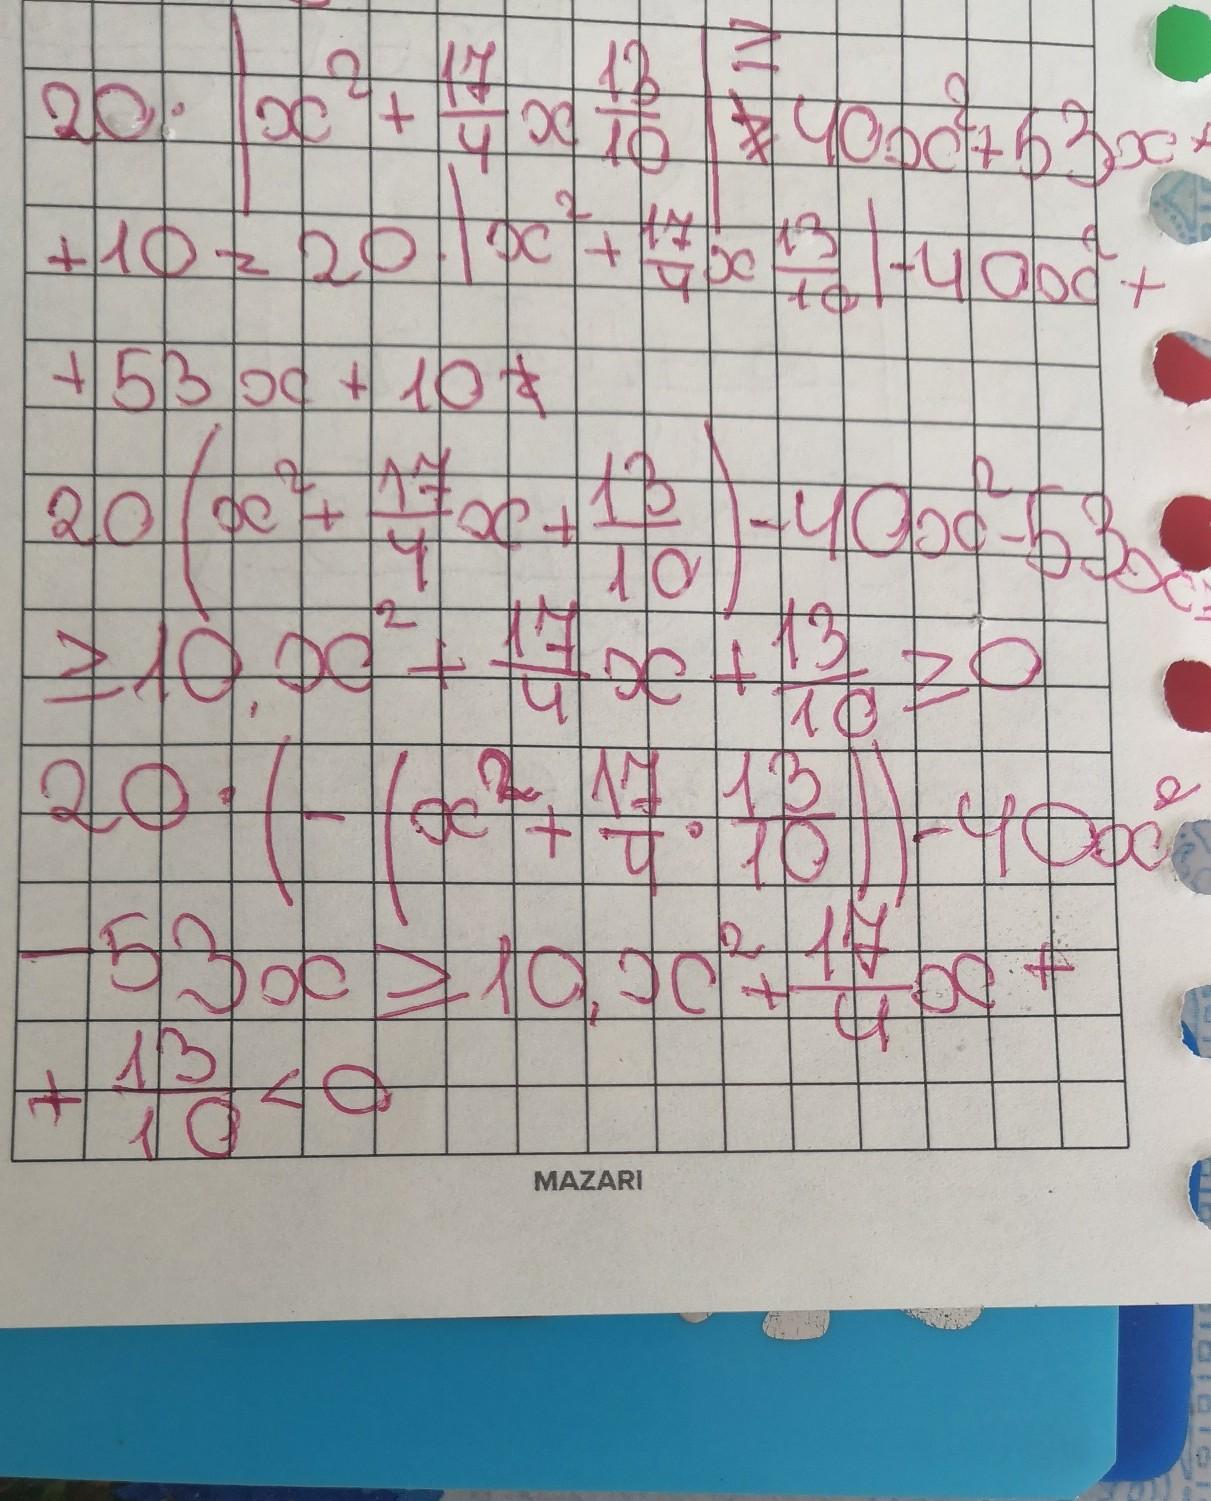 20 · |x² + 17/4 x 13/10| ≥ 40x² + 53x +
+ 10 = 20 · |x² + 17/4 x 13/10| - 40x² +
+ 53x + 10
20 (x² + 17/4 x + 13/10) - 40x² - 53x
≥ 10, x² + 17/4 x + 13/10 ≥ 0
20 · (- (x² + 17/4 · 13/10)) - 40x²
- 53x ≥ 10, x² + 17/4 x +
+ 13/10 < 0
MAZARI